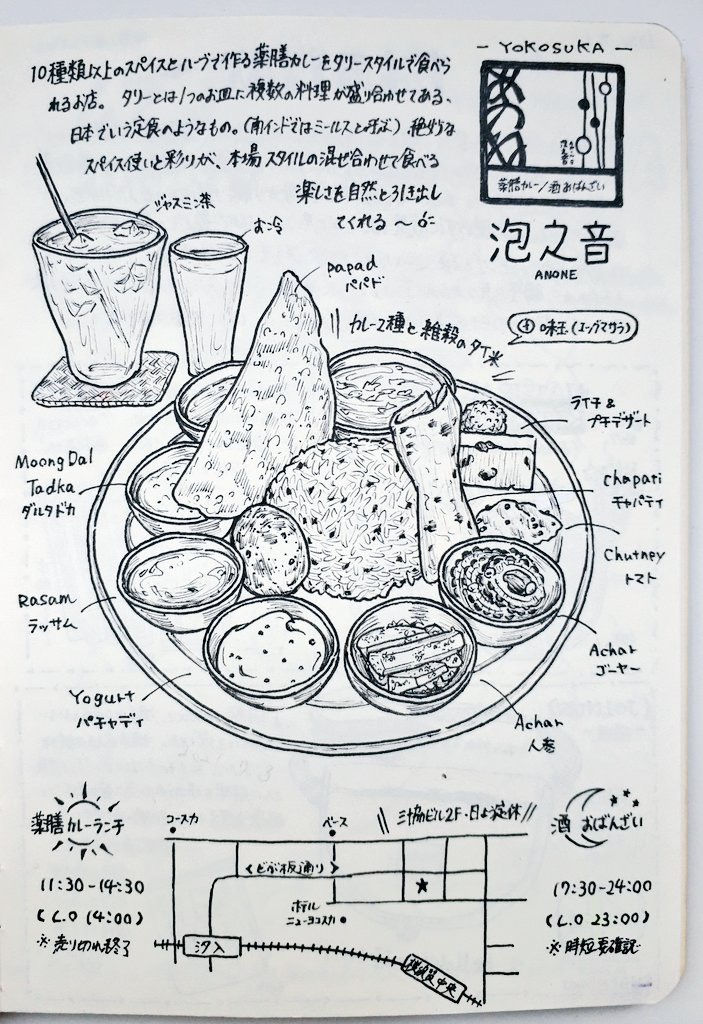 10種類以上のスパイスとハーブで作る薬膳カレーをタリースタイルで食べら
れるお店。タリーとは1つのお皿に複数の料理が盛り合わせてある、
日本でいう定食のようなもの。(南インドではミールスと呼ぶ) 絶妙な
スパイス使いと彩りが、本場スタイルの混ぜ合わせて食べる
楽しさを自然と引き出し
てくれる
- YOKOSUKA -
あのね
薬膳カレー/酒おばんざい
泡之音
ANONE
ジャスミン茶
お冷
papad
パパド
カレー2種と雑穀のタイ米
味玉(エッグマサラ)
ライチ&
プチデザート
Moong Dal
Tadka
ダルタドカ
chapati
チャパティ
Chutney
トマト
Rasam
ラッサム
Achar
ゴーヤー
Yogurt
パチャディ
Achar
人参
薬膳カレーランチ
11:30-14:30
(L.O 14:00)
※売り切れ終了
コースカ
ベース
三協ビル2F・日よ定休
<どぶ板通り>
ホテル
ニューヨコスカ
汐入
横須賀中央
酒 おばんざい
17:30-24:00
(L.O 23:00)
※時短要確認